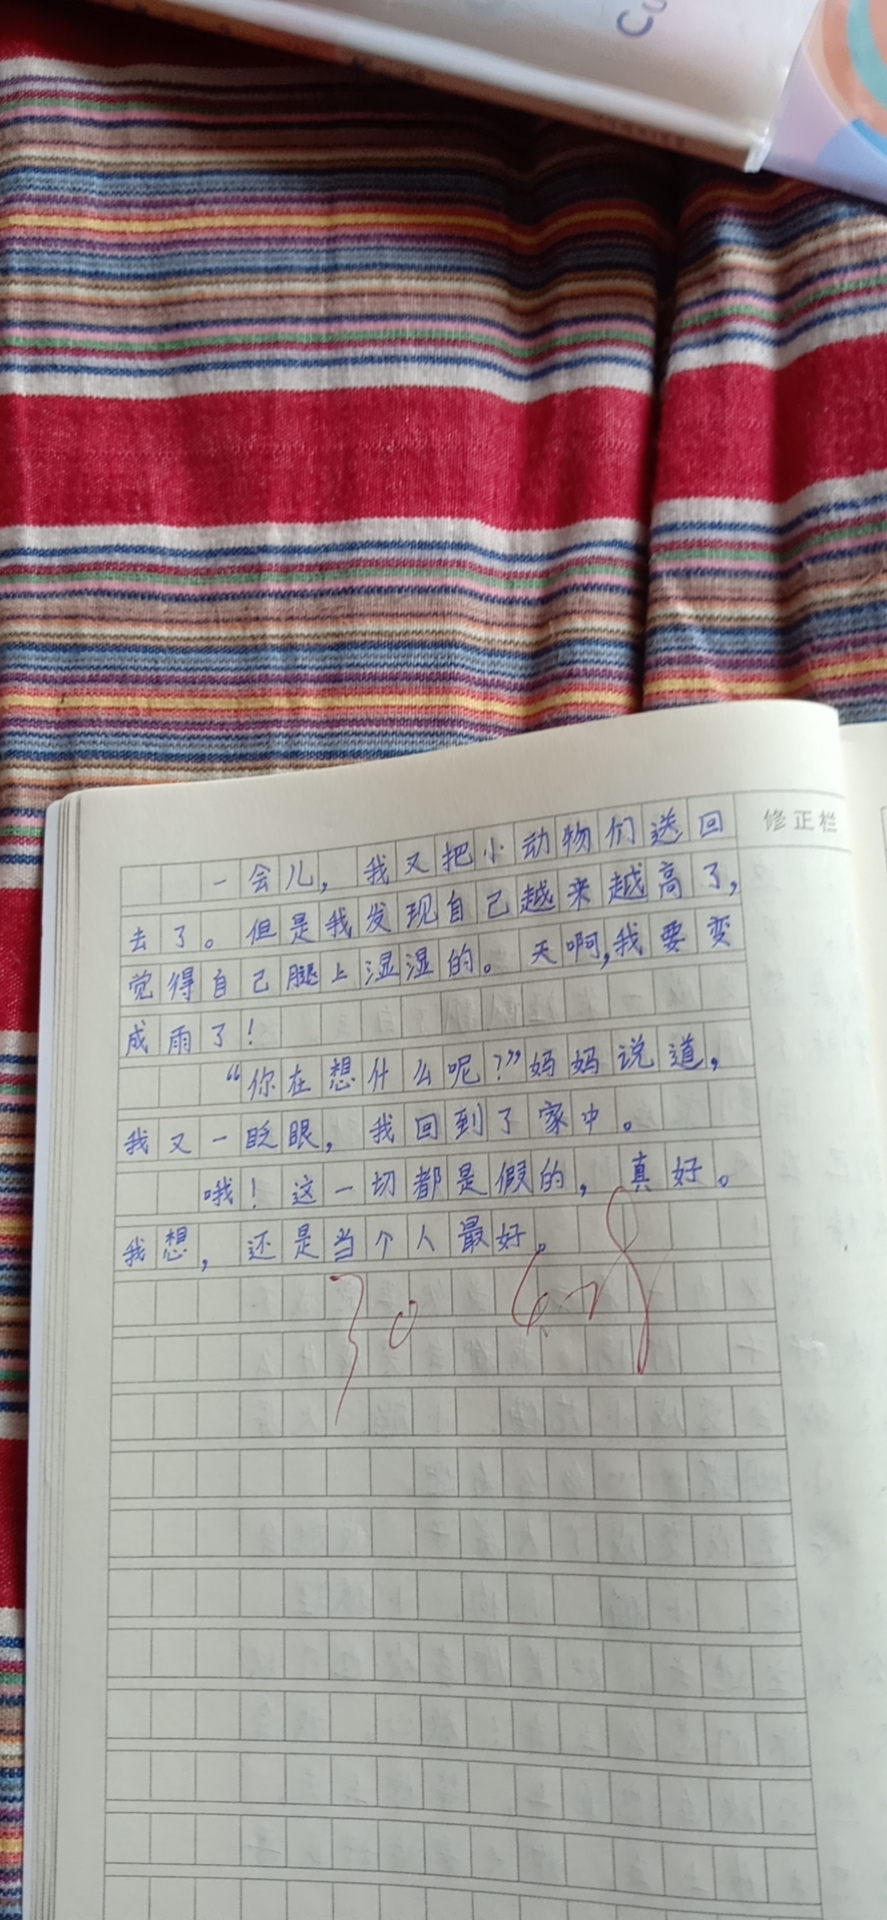 Cu
修正栏
一会儿，我又把小动物们送回
去了。但是我发现自己越来越高了，
觉得自己腿上湿湿的。天啊，我要变
成雨了！
“你在想什么呢？”妈妈说道，
我又一眨眼，我回到了家中。
哦！这一切都是假的，真好。
我想，还是当个人最好。
30 6.28